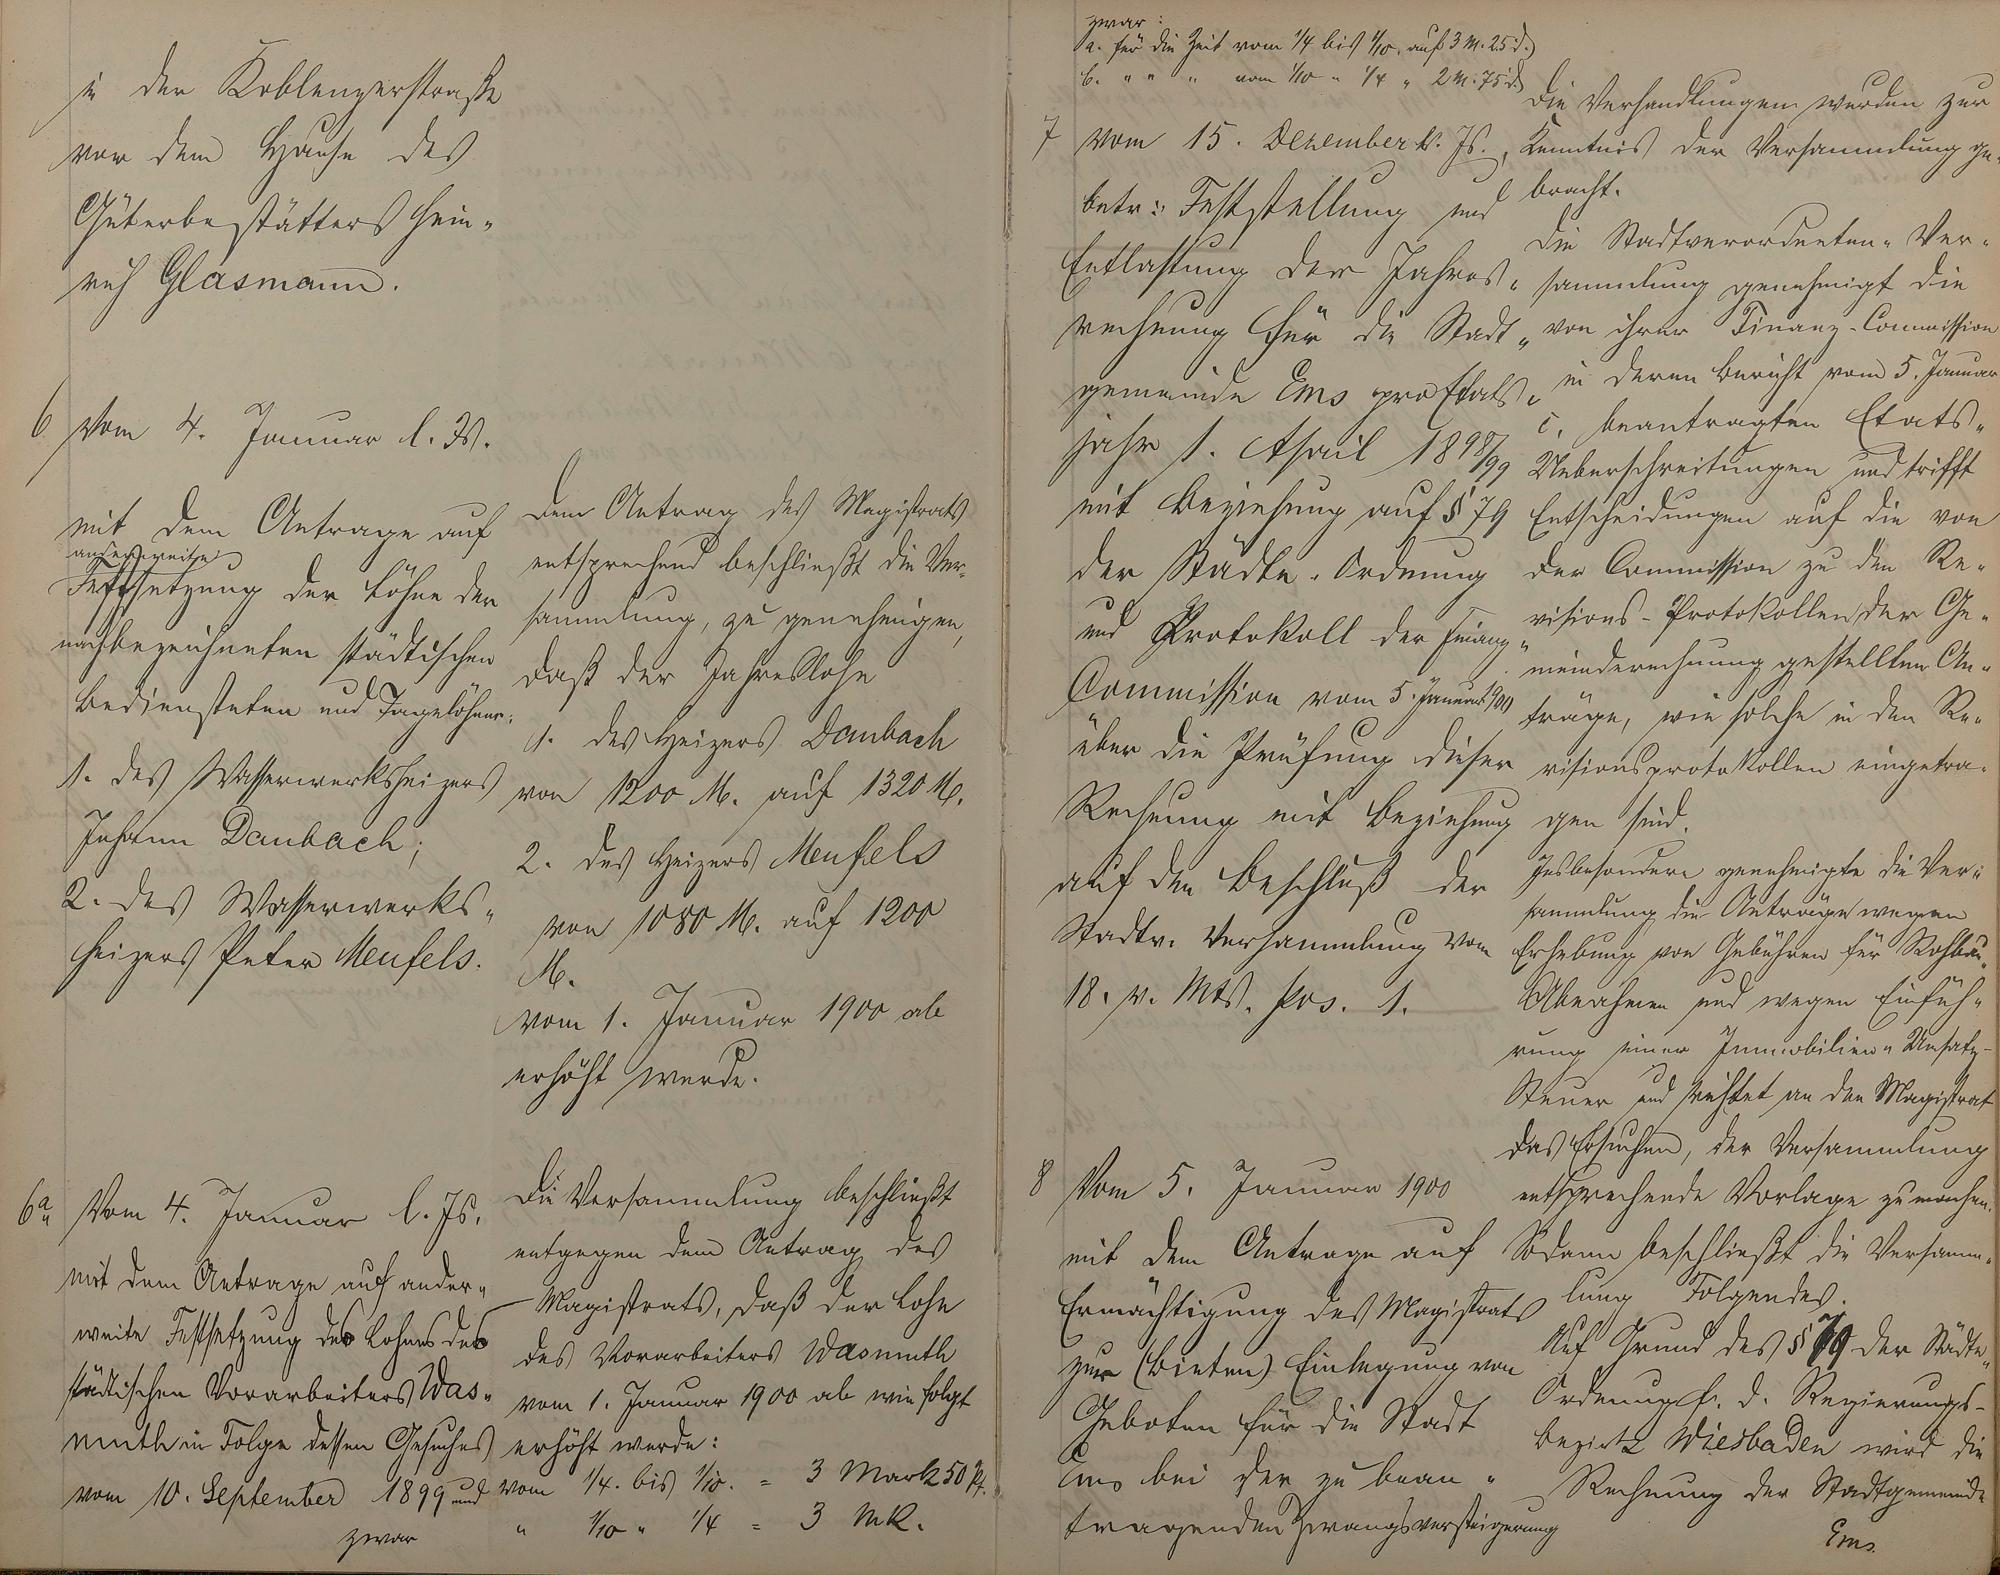 in der Koblenzerstraße
vor dem Hause des
Güterbestätters Hein-
rich Glasmann.
6 Vom 4. Januar l. Js.
mit dem Antrage auf
anderweite
Festsetzung der Löhne der
nachbezeichneten städtischen
Bediensteten und Tagelöhner:
1. des Wasserwerksheizers
Johann Daubach;
2. des Wasserwerks-
heizers Peter Meufels.
Dem Antrag des Magistrats
entsprechend beschließt die Ver-
sammlung, zu genehmigen,
daß der Jahreslohn
1. des Heizers Daubach
von 1200 M. auf 1320 M.
2. des Heizers Meufels
von 1080 M. auf 1200
M.
vom 1. Januar 1900 ab
erhöht werde.
6a Vom 4. Januar l. Js.
mit dem Antrage auf ander-
weite Festsetzung des Lohnes des
städtischen Vorarbeiters Was-
muth in Folge dessen Gesuches
vom 10. September 1899 und
zwar
Die Versammlung beschließt
entgegen dem Antrag des
Magistrats, daß der Lohn
des Vorarbeiters Wasmuth
vom 1. Januar 1900 ab wie folgt
erhöht werde:
vom 1/4. bis 1/10. = 3 Mark 50 Pf.
" 1/10 " 1/4 = 3 Mk.
zwar:
a. für die Zeit vom 1/4 bis 1/10. auf 3 M. 25 d.
b. " " " vom 1/10 " 1/4 " 2 M. 75 d.
7 Vom 15. Dezember v. Js.,
betr: Feststellung und
Entlastung der Jahres-
rechnung für die Stadt-
gemeinde Ems pro Etats-
jahr 1. April 1898/99
mit Beziehung auf § 79
der Städte-Ordnung
und Protokoll der Finanz-
Commission vom 5. Januar 1900
über die Prüfung dieser
Rechnung mit Beziehung
auf den Beschluß der
Stadtv. Versammlung vom
18. v. Mts. pos. 1.
Die Verhandlungen wurden zur
Kenntnis der Versammlung ge-
bracht.
Die Stadtverordneten-Ver-
sammlung genehmigt die
von ihrer Finanz-Commission
in deren Bericht vom 5. Januar
c. beantragten Etats-
Ueberschreitungen und trifft
Entscheidungen auf die von
der Commission zu den Re-
visions-Protokollen der Ge-
meinderechnung gestellten An-
träge, wie solche in den Re-
visionsprotokollen eingetra-
gen sind.
Insbesondere genehmigte die Ver-
sammlung die Anträge wegen
Erhebung von Gebühren für Rohbau-
Abnahmen und wegen Einfüh-
rung einer Immobilien-Umsatz-
Steuer und richtet an den Magistrat
das Ersuchen, der Versammlung
entsprechende Vorlage zu machen.
Sodann beschließt die Versamm-
lung Folgendes.
Auf Grund des § 79 der Städte-
Ordnung f. d. Regierungs-
bezirk Wiesbaden wird die
Rechnung der Stadtgemeinde
Ems
8 Vom 5. Januar 1900
mit dem Antrage auf
Ermächtigung des Magistrats
zur (Bieten) Einlegung von
Geboten für die Stadt
Ems bei der zu bean-
tragenden Zwangsversteigerung